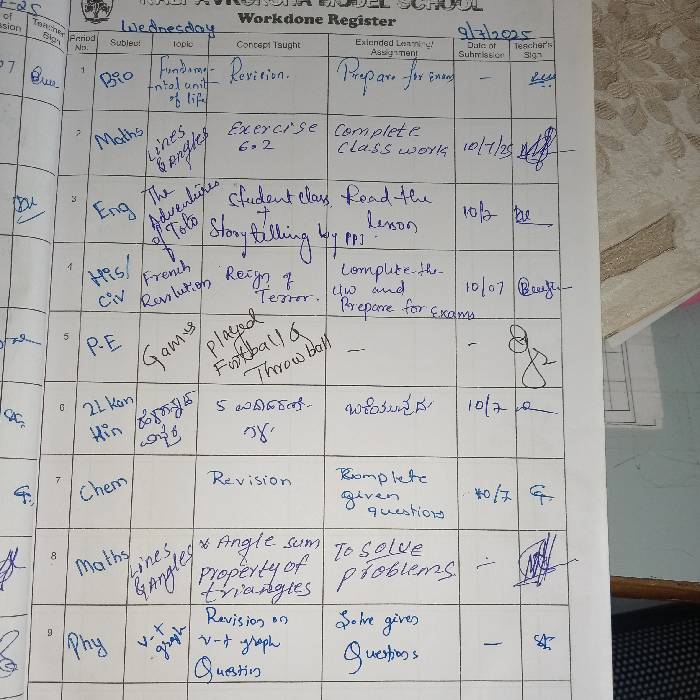 MODEL SCHOOL
Workdone Register
Wednesday
9/7/2025
Period No.
Subject
Topic
Concept Taught
Extended Learning/ Assignment
Date of Submission
Teacher's Sign
1
Bio
Fundame-
ntal unit
of life
Revision.
Prepare for Exam
-
2
Maths
Lines
& Angles
Exercise
6.2
Complete
Class work
10/7/25
3
Eng
The
Adventures
of Toto
Student class
+
Story telling by PPT.
Read the
lesson
10/7
4
His/
Civ
French
Revolution
Reign of
Terror.
Complete the
CW and
Prepare for Exams
10/07
5
P.E
Games
Played
Football &
Throwball
-
-
6
2L Kan
Hin
10/7
7
Chem
Revision
Complete
given
questions
10/7
8
Maths
Lines
& Angles
* Angle sum
property of
triangles
To solve
problems
-
9
Phy
v-t
graph
Revision on
v-t graph
Question
Solve given
Questions
-